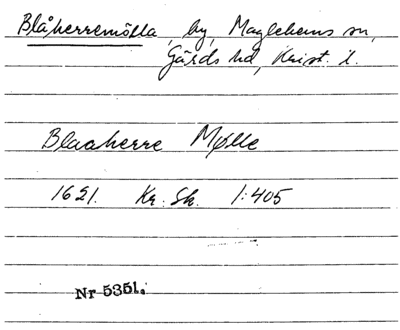 Blåherremölla, by, Maglehems sn,
Gärds hd, Krist. l.
Blaaherre Mølle
1621. Kr. Sk. 1:405
Nr 5351.